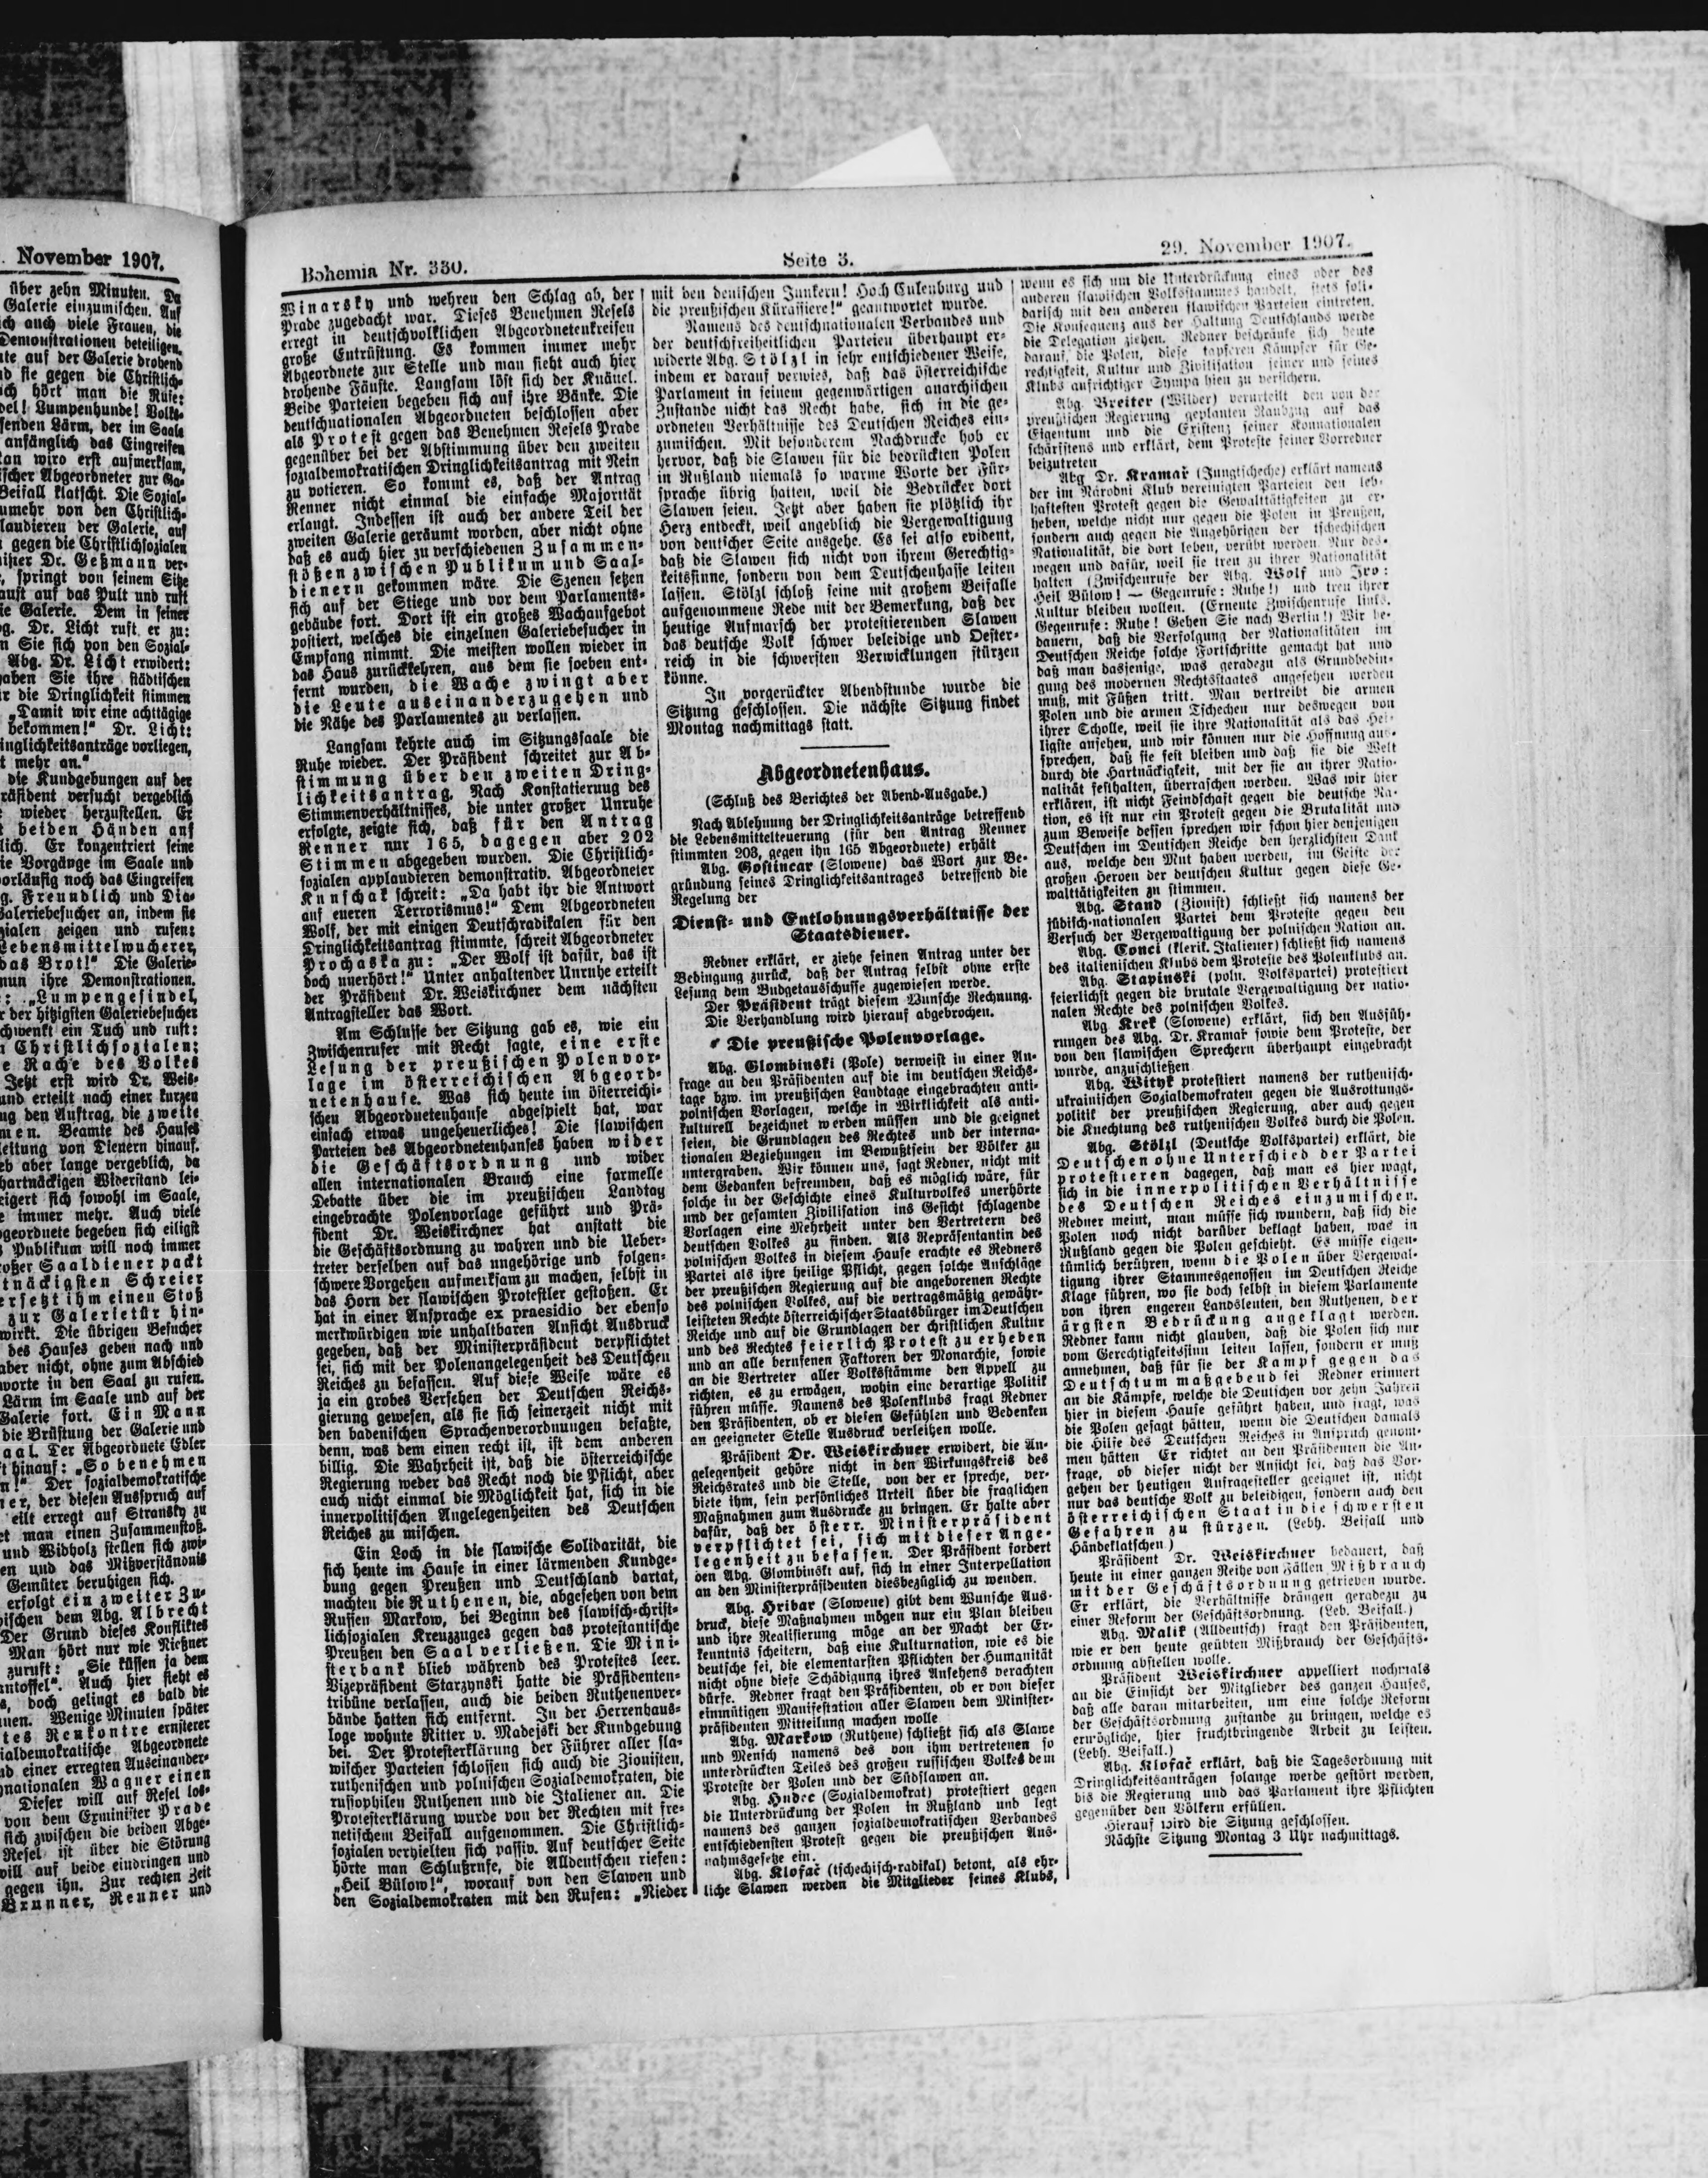 . November 1907.
über zehn Minuten. Da
Galerie einzumischen. Auf
ich auch viele Frauen, die
Demonstrationen beteiligen.
te auf der Galerie drohend
d sie gegen die Christlich-
ch hört man die Rufe:
del! Lumpenhunde! Volks-
senden Lärm, der im Saale
anfänglich das Eingreifen
an wird erst aufmerksam,
ischer Abgeordneter zur Ga-
Beifall klatscht. Die Sozial-
umehr von den Christlich-
laudieren der Galerie, auf
gegen die Christlichsozialen
ister Dr. Geßmann ver-
, springt von seinem Sitze
aust auf das Pult und ruft
ie Galerie. Dem in seiner
g. Dr. Licht ruft er zu:
n Sie sich von den Sozial-
Abg. Dr. Licht erwidert:
aben Sie ihre städtischen
r die Dringlichkeit stimmen
„Damit wir eine achttägige
bekommen!“ Dr. Licht:
inglichkeitsanträge vorliegen,
t mehr an.“
die Kundgebungen auf der
räsident versucht vergeblich
wieder herzustellen. Er
beiden Händen auf
lich. Er konzentriert seine
ie Vorgänge im Saale und
orläufig noch das Eingreifen
g. Freundlich und Dia-
Galeriebesucher an, indem sie
zialen zeigen und rufen:
Lebensmittelwucherer,
das Brot!“ Die Galerie-
nun ihre Demonstrationen.
: „Lumpengesindel,
r der hitzigsten Galeriebesucher
chwenkt ein Tuch und ruft:
n Christlichsozialen:
e Rache des Volkes
Jetzt erst wird Dr. Weis-
und erteilt nach einer kurzen
ng den Auftrag, die zweite
men. Beamte des Hauses
leitung von Dienern hinauf.
eb aber lange vergeblich, da
hartnäckigen Widerstand lei-
eigert sich sowohl im Saale,
e immer mehr. Auch viele
geordnete begeben sich eiligst
Publikum will noch immer
roßer Saaldiener packt
tnäckigsten Schreier
ersetzt ihm einen Stoß
zur Galerietür hin-
wirkt. Die übrigen Besucher
des Hauses geben nach und
aber nicht, ohne zum Abschied
worte in den Saal zu rufen.
Lärm im Saale und auf der
Galerie fort. Ein Mann
die Brüstung der Galerie und
aal. Der Abgeordnete Edler
t hinauf: „So benehmen
n!“ Der sozialdemokratische
er, der diesen Ausspruch auf
eilt erregt auf Stransky zu
et man einen Zusammenstoß.
und Widholz stellen sich zwi-
en und das Mißverständnis
Gemüter beruhigen sich.
erfolgt ein zweiter Zu-
ischen dem Abg. Albrecht
Der Grund dieses Konfliktes
Man hört nur wie Nießner
zuruft: „Sie küssen ja dem
antoffel“. Auch hier sieht es
s, doch gelingt es bald die
nen. Wenige Minuten später
tes Renkontre ernsterer
ialdemokratische Abgeordnete
d einer erregten Auseinander-
nationalen Wagner einen
Dieser will auf Resel los-
von dem Exminister Prade
sich zwischen die beiden Abge-
Resel ist über die Störung
will auf beide eindringen und
gegen ihn. Zur rechten Zeit
Brunner, Renner und
Bohemia Nr. 330.
Seite 3.
29. November 1907.
Winarsky und wehren den Schlag ab, der
Prade zugedacht war. Dieses Benehmen Resels
erregt in deutschvolklichen Abgeordnetenkreisen
große Entrüstung. Es kommen immer mehr
Abgeordnete zur Stelle und man sieht auch hier
drohende Fäuste. Langsam löst sich der Knäuel.
Beide Parteien begeben sich auf ihre Bänke. Die
deutschnationalen Abgeordneten beschlossen aber
als Protest gegen das Benehmen Resels Prade
gegenüber bei der Abstimmung über den zweiten
sozialdemokratischen Dringlichkeitsantrag mit Nein
zu votieren. So kommt es, daß der Antrag
Renner nicht einmal die einfache Majorität
erlangt. Indessen ist auch der andere Teil der
zweiten Galerie geräumt worden, aber nicht ohne
daß es auch hier zu verschiedenen Zusammen-
stößen zwischen Publikum und Saal-
dienern gekommen wäre. Die Szenen setzen
sich auf der Stiege und vor dem Parlaments-
gebäude fort. Dort ist ein großes Wachaufgebot
postiert, welches die einzelnen Galeriebesucher in
Empfang nimmt. Die meisten wollen wieder in
das Haus zurückkehren, aus dem sie soeben ent-
fernt wurden, die Wache zwingt aber
die Leute auseinanderzugehen und
die Nähe des Parlamentes zu verlassen.
Langsam kehrte auch im Sitzungssaale die
Ruhe wieder. Der Präsident schreitet zur Ab-
stimmung über den zweiten Dring-
lichkeitsantrag. Nach Konstatierung des
Stimmenverhältnisses, die unter großer Unruhe
erfolgte, zeigte sich, daß für den Antrag
Renner nur 165, dagegen aber 202
Stimmen abgegeben wurden. Die Christlich-
sozialen applaudieren demonstrativ. Abgeordneter
Kunschak schreit: „Da habt ihr die Antwort
auf eueren Terrorismus!“ Dem Abgeordneten
Wolf, der mit einigen Deutschradikalen für den
Dringlichkeitsantrag stimmte, schreit Abgeordneter
Prochaska zu: „Der Wolf ist dafür, das ist
doch unerhört!“ Unter anhaltender Unruhe erteilt
der Präsident Dr. Weiskirchner dem nächsten
Antragsteller das Wort.
Am Schlusse der Sitzung gab es, wie ein
Zwischenrufer mit Recht sagte, eine erste
Lesung der preußischen Polenvor-
lage im österreichischen Abgeord-
netenhause. Was sich heute im österreichi-
schen Abgeordnetenhause abgespielt hat, war
einfach etwas ungeheuerliches! Die slawischen
Parteien des Abgeordnetenhauses haben wider
die Geschäftsordnung und wider
allen internationalen Brauch eine farmelle
Debatte über die im preußischen Landtag
eingebrachte Polenvorlage geführt und Prä-
sident Dr. Weiskirchner hat anstatt die
die Geschäftsordnung zu wahren und die Ueber-
treter derselben auf das ungehörige und folgen-
schwere Vorgehen aufmerksam zu machen, selbst in
das Horn der slawischen Protestler gestoßen. Er
hat in einer Ansprache ex praesidio der ebenso
merkwürdigen wie unhaltbaren Ansicht Ausdruck
gegeben, daß der Ministerpräsident verpflichtet
sei, sich mit der Polenangelegenheit des Deutschen
Reiches zu befassen. Auf diese Weise wäre es
ja ein grobes Versehen der Deutschen Reichs-
gierung gewesen, als sie sich seinerzeit nicht mit
den badenischen Sprachenverordnungen befaßte,
denn, was dem einen recht ist, ist dem anderen
billig. Die Wahrheit ist, daß die österreichische
Regierung weder das Recht noch die Pflicht, aber
auch nicht einmal die Möglichkeit hat, sich in die
innerpolitischen Angelegenheiten des Deutschen
Reiches zu mischen.
Ein Loch in die slawische Solidarität, die
sich heute im Hause in einer lärmenden Kundge-
bung gegen Preußen und Deutschland dartat,
machten die Ruthenen, die, abgesehen von dem
Russen Markow, bei Beginn des slawisch-christ-
lichsozialen Kreuzzuges gegen das protestantische
Preußen den Saal verließen. Die Mini-
sterbank blieb während des Protestes leer.
Vizepräsident Starzynski hatte die Präsidenten-
tribüne verlassen, auch die beiden Ruthenenver-
bände hatten sich entfernt. In der Herrenhaus-
loge wohnte Ritter v. Madejski der Kundgebung
bei. Der Protesterklärung der Führer aller sla-
wischer Parteien schlossen sich auch die Zionisten,
ruthenischen und polnischen Sozialdemokraten, die
russophilen Ruthenen und die Italiener an. Die
Protesterklärung wurde von der Rechten mit fre-
netischem Beifall aufgenommen. Die Christlich-
sozialen verhielten sich passiv. Auf deutscher Seite
hörte man Schlußrufe, die Alldeutschen riefen:
„Heil Bülow!“, worauf von den Slawen und
den Sozialdemokraten mit den Rufen: „Nieder
mit den deutschen Junkern! Hoch Eulenburg und
die preußischen Kürassiere!“ geantwortet wurde.
Namens des deutschnationalen Verbandes und
der deutschfreiheitlichen Parteien überhaupt er-
widerte Abg. Stölzl in sehr entschiedener Weise,
indem er darauf verwies, daß das österreichische
Parlament in seinem gegenwärtigen anarchischen
Zustande nicht das Recht habe, sich in die ge-
ordneten Verhältnisse des Deutschen Reiches ein-
zumischen. Mit besonderem Nachdrucke hob er
hervor, daß die Slawen für die bedrückten Polen
in Rußland niemals so warme Worte der Für-
sprache übrig hatten, weil die Bedrücker dort
Slawen seien. Jetzt aber haben sie plötzlich ihr
Herz entdeckt, weil angeblich die Vergewaltigung
von deutscher Seite ausgehe. Es sei also evident,
daß die Slawen sich nicht von ihrem Gerechtig-
keitssinne, sondern von dem Deutschenhasse leiten
lassen. Stölzl schloß seine mit großem Beifalle
aufgenommene Rede mit der Bemerkung, daß der
heutige Aufmarsch der protestierenden Slawen
das deutsche Volk schwer beleidige und Oester-
reich in die schwersten Verwicklungen stürzen
könne.
In vorgerückter Abendstunde wurde die
Sitzung geschlossen. Die nächste Sitzung findet
Montag nachmittags statt.
Abgeordnetenhaus.
(Schluß des Berichtes der Abend-Ausgabe.)
Nach Ablehnung der Dringlichkeitsanträge betreffend
die Lebensmittelteuerung (für den Antrag Renner
stimmten 203, gegen ihn 165 Abgeordnete) erhält
Abg. Gostincar (Slowene) das Wort zur Be-
gründung seines Dringlichkeitsantrages betreffend die
Regelung der
Dienst- und Entlohnungsverhältnisse der
Staatsdiener.
Redner erklärt, er ziehe seinen Antrag unter der
Bedingung zurück, daß der Antrag selbst ohne erste
Lesung dem Budgetausschusse zugewiesen werde.
Der Präsident trägt diesem Wunsche Rechnung.
Die Verhandlung wird hierauf abgebrochen.
Die preußische Polenvorlage.
Abg. Glombinski (Pole) verweist in einer An-
frage an den Präsidenten auf die im deutschen Reichs-
tage bzw. im preußischen Landtage eingebrachten anti-
polnischen Vorlagen, welche in Wirklichkeit als anti-
kulturell bezeichnet werden müssen und die geeignet
seien, die Grundlagen des Rechtes und der interna-
tionalen Beziehungen im Bewußtsein der Völker zu
untergraben. Wir können uns, sagt Redner, nicht mit
dem Gedanken befreunden, daß es möglich wäre, für
solche in der Geschichte eines Kulturvolkes unerhörte
und der gesamten Zivilisation ins Gesicht schlagende
Vorlagen eine Mehrheit unter den Vertretern des
deutschen Volkes zu finden. Als Repräsentantin des
polnischen Volkes in diesem Hause erachte es Redners
Partei als ihre heilige Pflicht, gegen solche Anschläge
der preußischen Regierung auf die angeborenen Rechte
des polnischen Volkes, auf die vertragsmäßig gewähr-
leisteten Rechte österreichischer Staatsbürger im Deutschen
Reiche und auf die Grundlagen der christlichen Kultur
und des Rechtes feierlich Protest zu erheben
und an alle berufenen Faktoren der Monarchie, sowie
an die Vertreter aller Volksstämme den Appell zu
richten, es zu erwägen, wohin eine derartige Politik
führen müsse. Namens des Polenklubs fragt Redner
den Präsidenten, ob er diesen Gefühlen und Bedenken
an geeigneter Stelle Ausdruck verleihen wolle.
Präsident Dr. Weiskirchner erwidert, die An-
gelegenheit gehöre nicht in den Wirkungskreis des
Reichsrates und die Stelle, von der er spreche, ver-
biete ihm, sein persönliches Urteil über die fraglichen
Maßnahmen zum Ausdrucke zu bringen. Er halte aber
dafür, daß der österr. Ministerpräsident
verpflichtet sei, sich mit dieser Ange-
legenheit zu befassen. Der Präsident fordert
den Abg. Glombinski auf, sich in einer Interpellation
an den Ministerpräsidenten diesbezüglich zu wenden.
Abg. Hribar (Slowene) gibt dem Wunsche Aus-
druck, diese Maßnahmen mögen nur ein Plan bleiben
und ihre Realisierung möge an der Macht der Er-
kenntnis scheitern, daß eine Kulturnation, wie es die
deutsche sei, die elementarsten Pflichten der Humanität
nicht ohne diese Schädigung ihres Ansehens verachten
dürfe. Redner fragt den Präsidenten, ob er von dieser
einmütigen Manifestation aller Slawen dem Minister-
präsidenten Mitteilung machen wolle
Abg. Markow (Ruthene) schließt sich als Slawe
und Mensch namens des von ihm vertretenen so
unterdrückten Teiles des großen russischen Volkes dem
Proteste der Polen und der Südslawen an.
Abg. Hudec (Sozialdemokrat) protestiert gegen
die Unterdrückung der Polen in Rußland und legt
namens des ganzen sozialdemokratischen Verbandes
entschiedensten Protest gegen die preußischen Aus-
nahmsgesetze ein.
Abg. Klofač (tschechisch-radikal) betont, als ehr-
liche Slawen werden die Mitglieder seines Klubs,
wenn es sich um die Unterdrückung eines oder des
anderen slawischen Volksstammes handelt, stets soli-
darisch mit den anderen slawischen Parteien eintreten.
Die Konsequenz aus der Haltung Deutschlands werde
die Delegation ziehen. Redner beschränke sich heute
darauf, die Polen, diese tapferen Kämpfer für Ge-
rechtigkeit, Kultur und Zivilisation seiner und seines
Klubs aufrichtiger Sympa hien zu versichern.
Abg. Breiter (Wilder) verurteilt den von der
preußischen Regierung geplanten Raubzug auf das
Eigentum und die Existenz seiner Konnationalen
schärfstens und erklärt, dem Proteste seiner Vorredner
beizutreten
Abg Dr. Kramař (Jungtscheche) erklärt namens
der im Národni Klub vereinigten Parteien den leb-
haftesten Protest gegen die Gewalttätigkeiten zu er-
heben, welche nicht nur gegen die Polen in Preußen,
sondern auch gegen die Angehörigen der tschechischen
Nationalität, die dort leben, verübt werden. Nur des-
wegen und dafür, weil sie treu zu ihrer Nationalität
halten (Zwischenrufe der Abg. Wolf und Iro:
Heil Bülow! — Gegenrufe: Ruhe!) und treu ihrer
Kultur bleiben wollen. (Erneute Zwischenrufe links.
Gegenrufe: Ruhe! Gehen Sie nach Berlin!) Wir be-
dauern, daß die Verfolgung der Nationalitäten im
Deutschen Reiche solche Fortschritte gemacht hat und
daß man dasjenige, was geradezu als Grundbedin-
gung des modernen Rechtsstaates angesehen werden
muß, mit Füßen tritt. Man vertreibt die armen
Polen und die armen Tschechen nur deswegen von
ihrer Scholle, weil sie ihre Nationalität als das Hei-
ligste ansehen, und wir können nur die Hoffnung aus-
sprechen, daß sie fest bleiben und daß sie die Welt
durch die Hartnäckigkeit, mit der sie an ihrer Natio-
nalität festhalten, überraschen werden. Was wir hier
erklären, ist nicht Feindschaft gegen die deutsche Na-
tion, es ist nur ein Protest gegen die Brutalität und
zum Beweise dessen sprechen wir schon hier denjenigen
Deutschen im Deutschen Reiche den herzlichsten Dank
aus, welche den Mut haben werden, im Geiste der
großen Heroen der deutschen Kultur gegen diese Ge-
walttätigkeiten zu stimmen.
Abg. Stand (Zionist) schließt sich namens der
jüdisch-nationalen Partei dem Proteste gegen den
Versuch der Vergewaltigung der polnischen Nation an.
Abg. Conci (klerik. Italiener) schließt sich namens
des italienischen Klubs dem Proteste des Polenklubs an.
Abg. Stapinski (poln. Volkspartei) protestiert
feierlichst gegen die brutale Vergewaltigung der natio-
nalen Rechte des polnischen Volkes.
Abg Krek (Slowene) erklärt, sich den Ausfüh-
rungen des Abg. Dr. Kramař sowie dem Proteste, der
von den slawischen Sprechern überhaupt eingebracht
wurde, anzuschließen
Abg. Wityk protestiert namens der ruthenisch-
ukrainischen Sozialdemokraten gegen die Ausrottungs-
politik der preußischen Regierung, aber auch gegen
die Knechtung des ruthenischen Volkes durch die Polen.
Abg. Stölzl (Deutsche Volkspartei) erklärt, die
Deutschen ohne Unterschied der Partei
protestieren dagegen, daß man es hier wagt,
sich in die innerpolitischen Verhältnisse
des Deutschen Reiches einzumischen.
Redner meint, man müsse sich wundern, daß sich die
Polen noch nicht darüber beklagt haben, was in
Rußland gegen die Polen geschieht. Es müsse eigen-
tümlich berühren, wenn die Polen über Vergewal-
tigung ihrer Stammesgenossen im Deutschen Reiche
Klage führen, wo sie doch selbst in diesem Parlamente
von ihren engeren Landsleuten, den Ruthenen, der
ärgsten Bedrückung angeklagt werden.
Redner kann nicht glauben, daß die Polen sich nur
vom Gerechtigkeitssinn leiten lassen, sondern er muß
annehmen, daß für sie der Kampf gegen das
Deutschtum maßgebend sei Redner erinnert
an die Kämpfe, welche die Deutschen vor zehn Jahren
hier in diesem Hause geführt haben, und fragt, was
die Polen gesagt hätten, wenn die Deutschen damals
die Hilfe des Deutschen Reiches in Anspruch genom-
men hätten Er richtet an den Präsidenten die An-
frage, ob dieser nicht der Ansicht sei, daß das Vor-
gehen der heutigen Anfragesteller geeignet ist, nicht
nur das deutsche Volk zu beleidigen, sondern auch den
österreichischen Staat in die schwersten
Gefahren zu stürzen. (Lebh. Beifall und
Händeklatschen)
Präsident Dr. Weiskirchner bedauert, daß
heute in einer ganzen Reihe von Fällen Mißbrauch
mit der Geschäftsordnung getrieben wurde.
Er erklärt, die Verhältnisse drängen geradezu zu
einer Reform der Geschäftsordnung. (Leb. Beifall.)
Abg. Malik (Alldeutsch) fragt den Präsidenten,
wie er den heute geübten Mißbrauch der Geschäfts-
ordnung abstellen wolle.
Präsident Weiskirchner appelliert nochmals
an die Einsicht der Mitglieder des ganzen Hauses,
daß alle daran mitarbeiten, um eine solche Reform
der Geschäftsordnung zustande zu bringen, welche es
ermögliche, hier fruchtbringende Arbeit zu leisten.
(Lebh. Beifall.)
Abg. Klofač erklärt, daß die Tagesordnung mit
Dringlichkeitsanträgen solange werde gestört werden,
bis die Regierung und das Parlament ihre Pflichten
gegenüber den Völkern erfüllen.
Hierauf wird die Sitzung geschlossen.
Nächste Sitzung Montag 3 Uhr nachmittags.